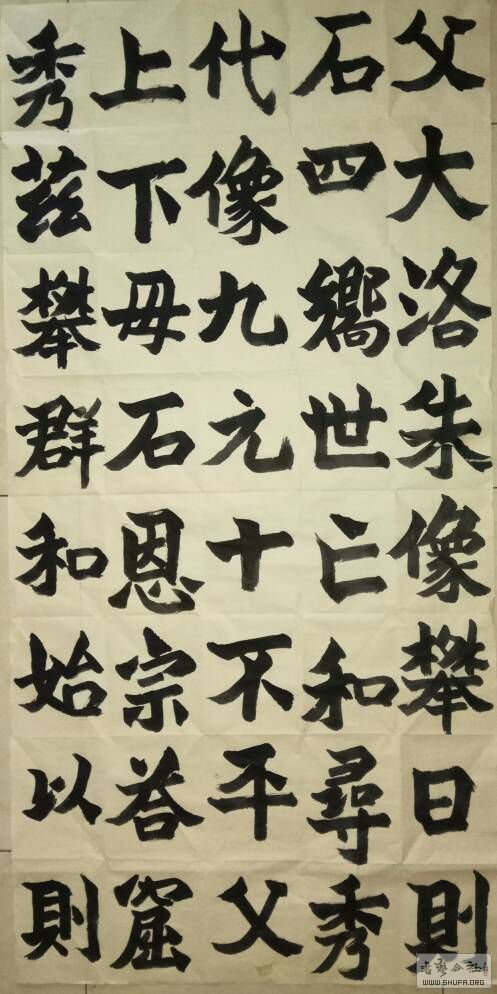 父大洛朱像攀日則
石四世亡和尋秀
代像九元十不平父
上下毋石恩宗答窟
秀茲攀群和始以則
书艺公社
WWW.SHUFA.ORG